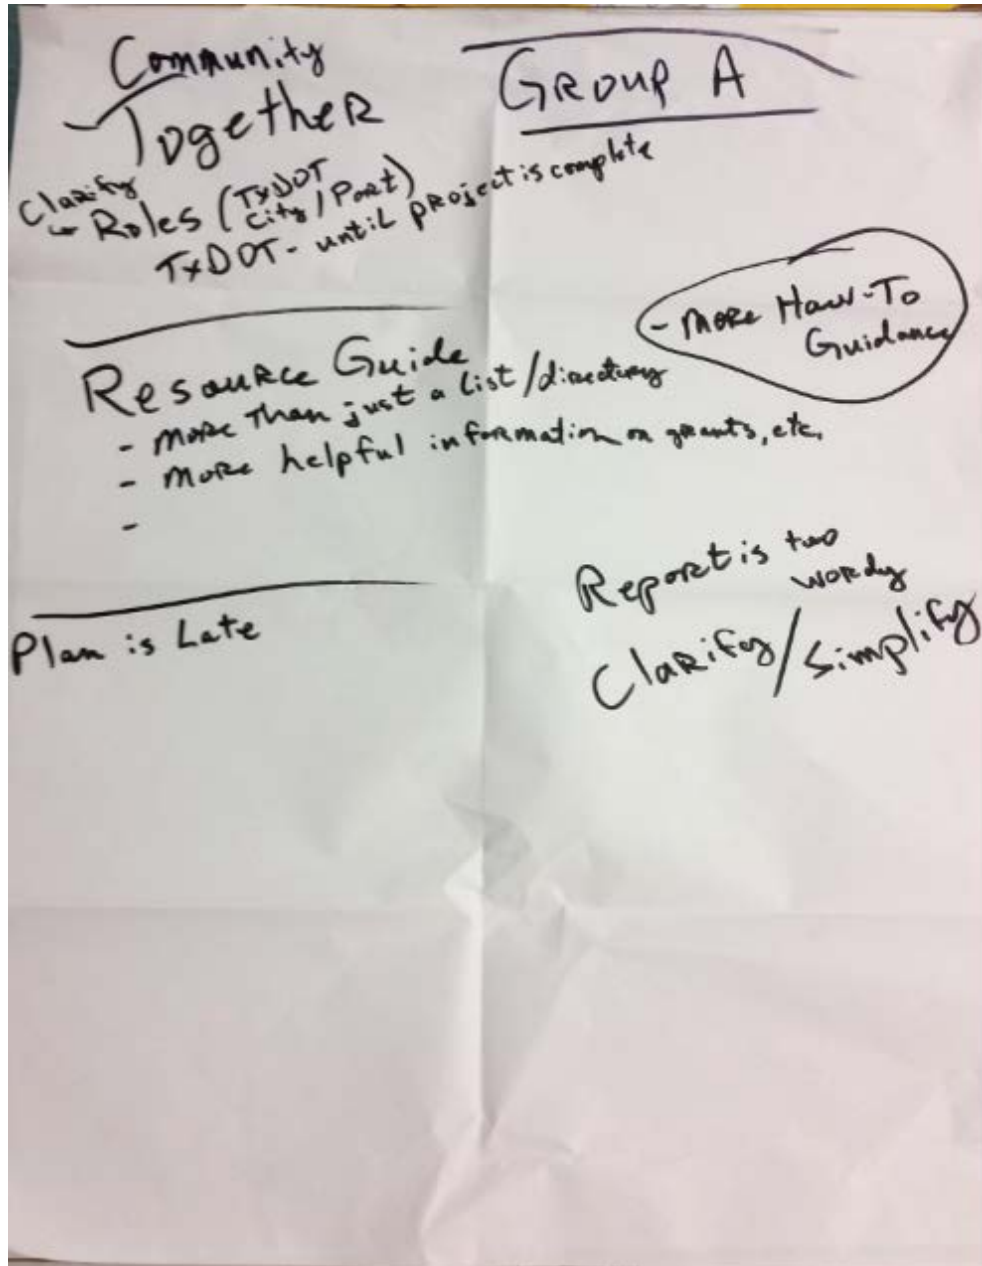 Community
Together
GROUP A
Clarify
Roles (TxDOT
City/Port)
TxDOT - until project is complete
- More How-To
Guidance
Resource Guide
- More than just a list/directory
- More helpful information on grants, etc.
-
Report is too
wordy
Clarify/Simplify
Plan is Late